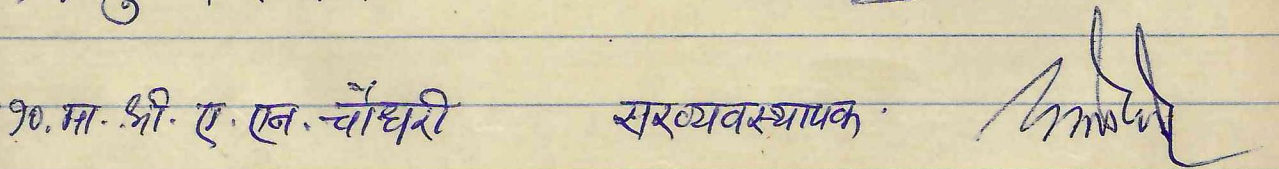 १०. मा. श्री. ए. एन. चौधरी सरव्यवस्थापक.